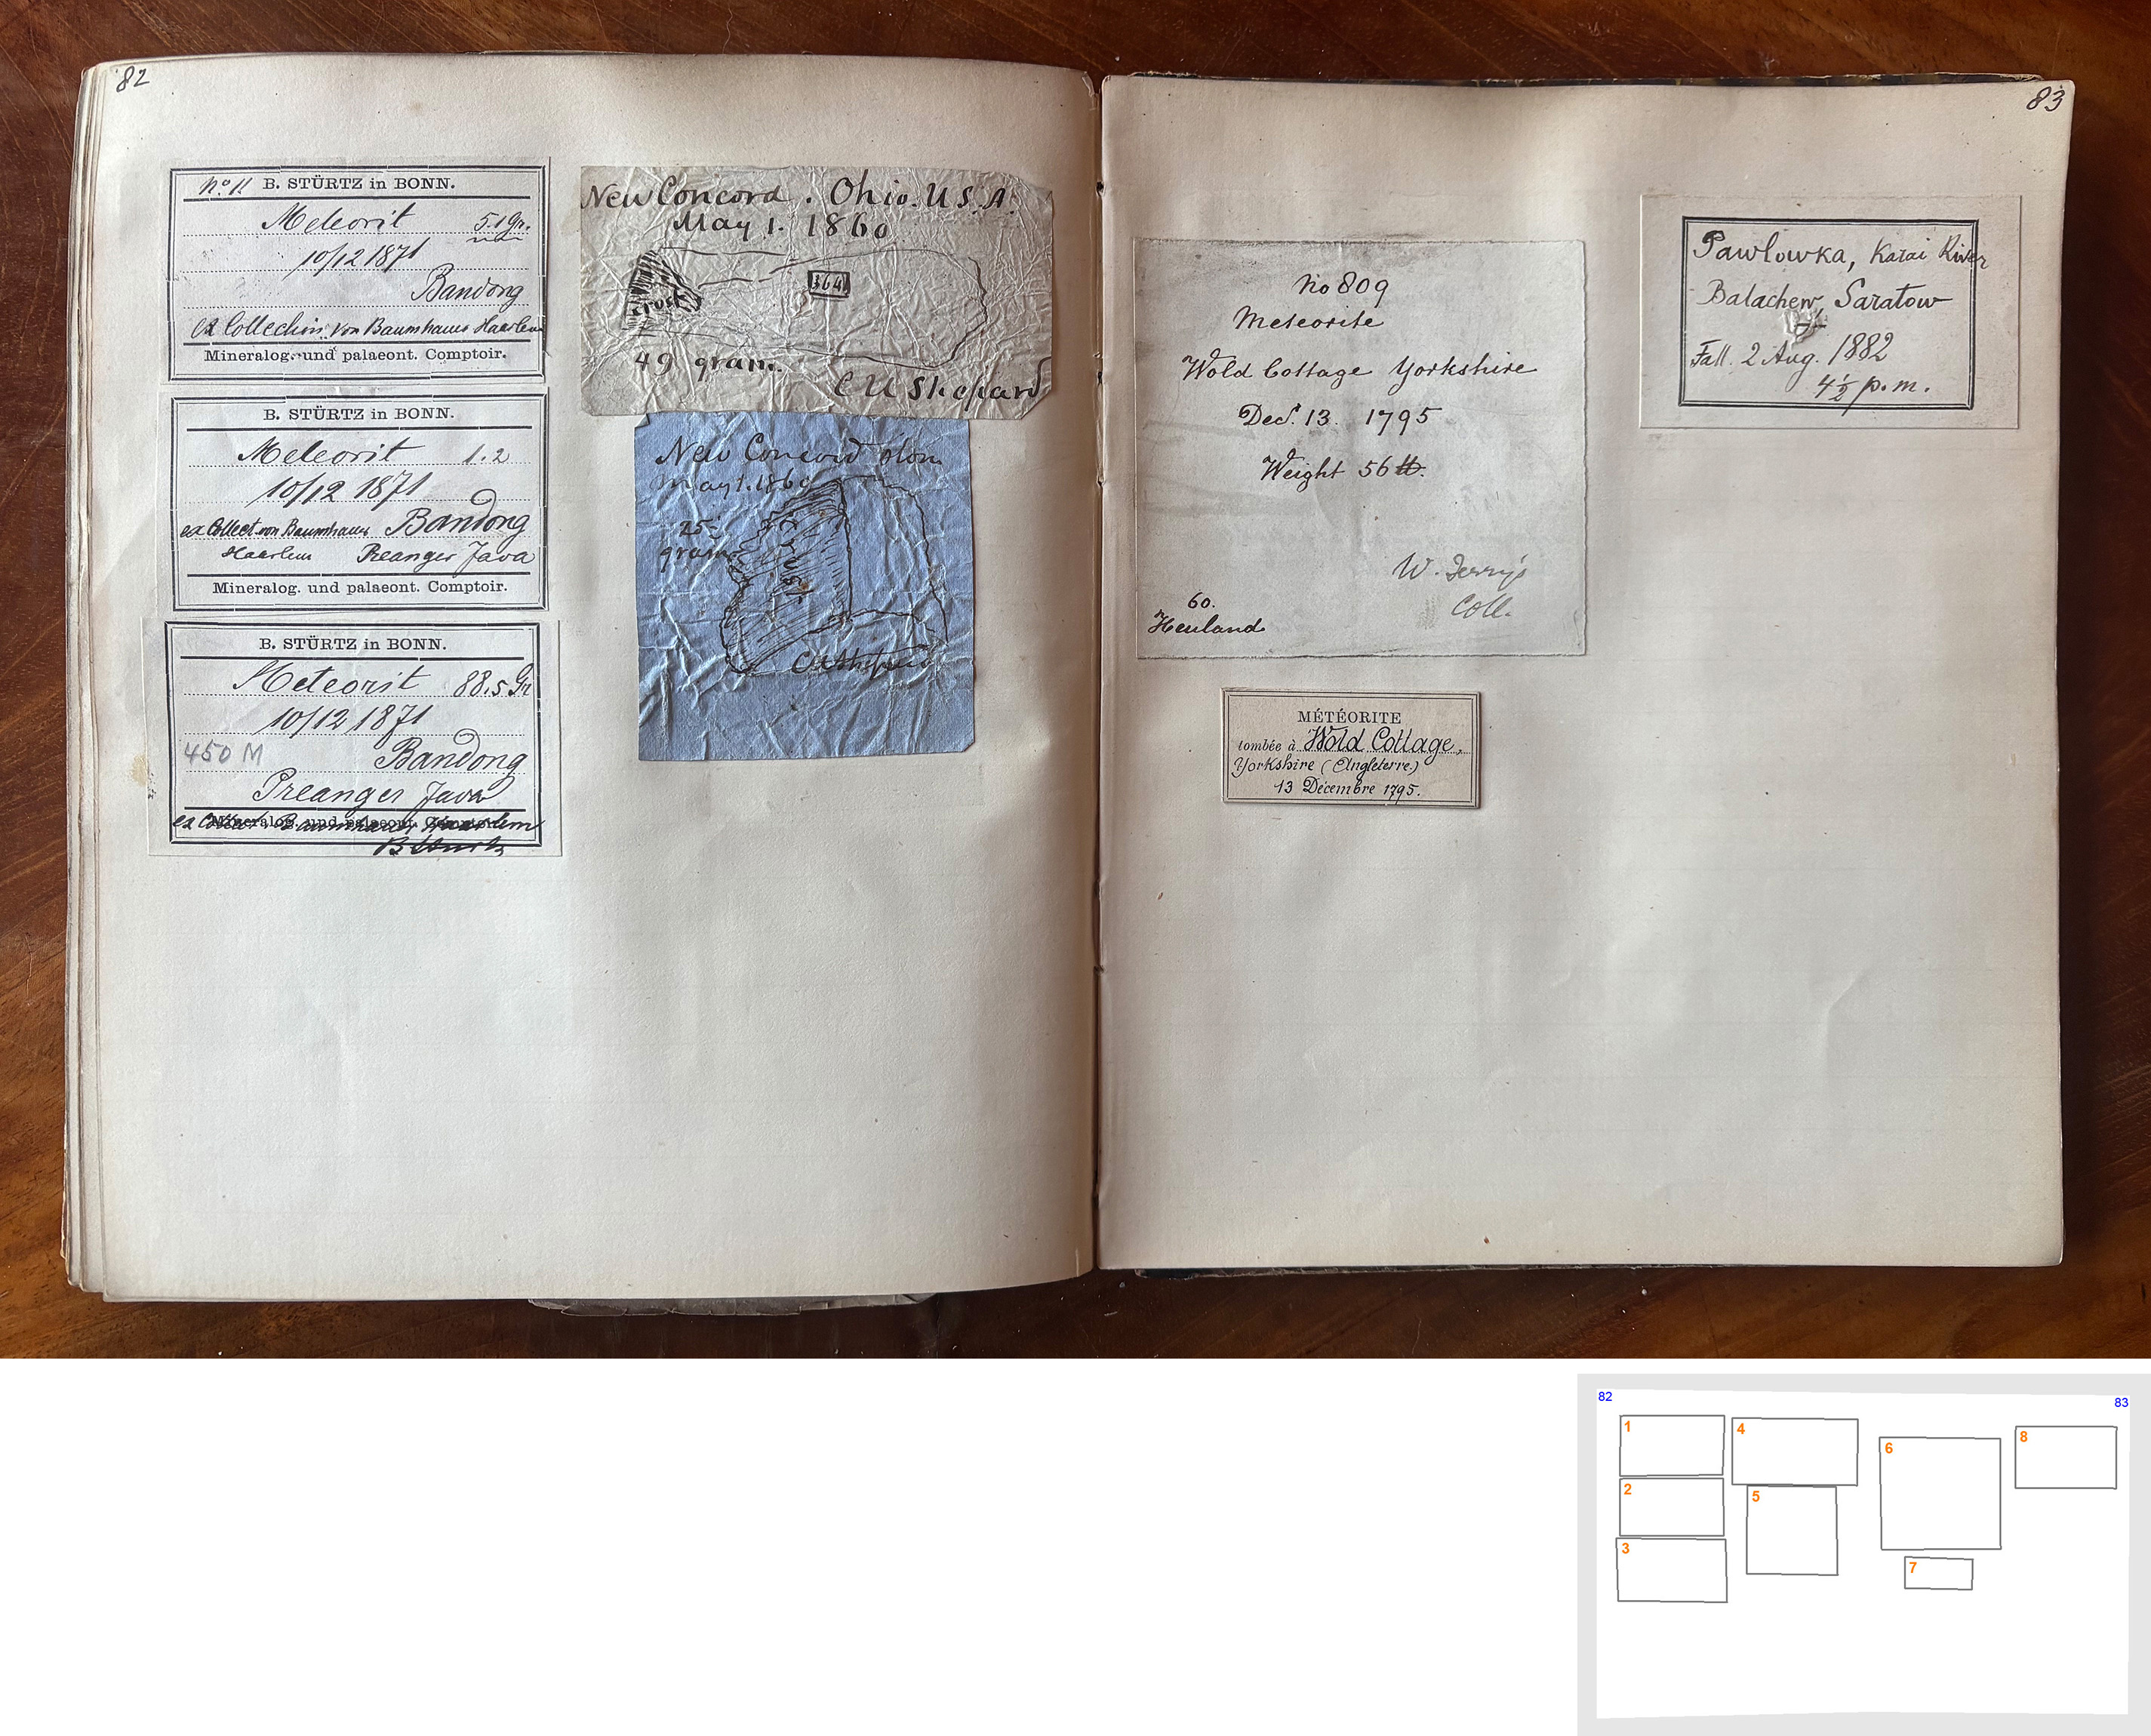 82
No 11 B. STÜRTZ in BONN.
Meteorit 5.1 Gr.
10/12 1871
Bandong
ex Collection von Baumhauer Haarlem
Mineralog. und palaeont. Comptoir.
B. STÜRTZ in BONN.
Meteorit 1.2
10/12 1871
ex Collect. von Baumhauer Bandong
Haarlem Preanger Java
Mineralog. und palaeont. Comptoir.
B. STÜRTZ in BONN.
Meteorit 88.5 Gr
10/12 1871
450 M Bandong
Preanger Java
Mineralog. und palaeont. Comptoir.
ex Baumhauer Haarlem
B Stürtz
New Concord. Ohio. U.S.A.
May 1. 1860
364
crust
49 gram.
C U Shepard
New Concord
May 1. 1860
25
gram
C U Shepard
83
No 809
Meteorite
Wold Cottage Yorkshire
Decr. 13. 1795
Weight 56 lb.
Coll.
60.
Heuland
MÉTÉORITE
tombée à Wold Cottage,
Yorkshire (Angleterre)
13 Décembre 1795.
Pawlowka, Karai River
Balachew, Saratow
Fall. 2 Aug. 1882
4½ p.m.
82
83
1
2
3
4
5
6
7
8